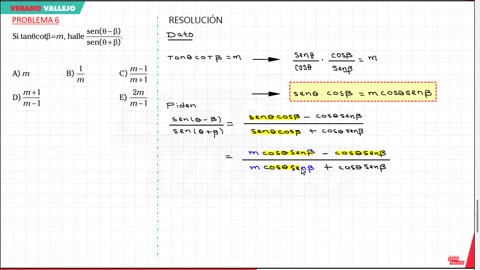 VERANO VALLEJO
PROBLEMA 6
Si tanθcotβ=m, halle sen(θ-β)/sen(θ+β).
A) m
B) 1/m
C) m-1/m+1
D) m+1/m-1
E) 2m/m-1
RESOLUCIÓN
Dato
Tanθ cotβ = m → senθ/cosθ · cosβ/senβ = m
→ senθ . cosβ = m cosθ senβ
Piden
sen(θ-β)/sen(θ+β) = senθ cosβ - cosθ senβ/senθ cosβ + cosθ senβ
= m cosθ senβ - cosθ senβ/m cosθ senβ + cosθ senβ